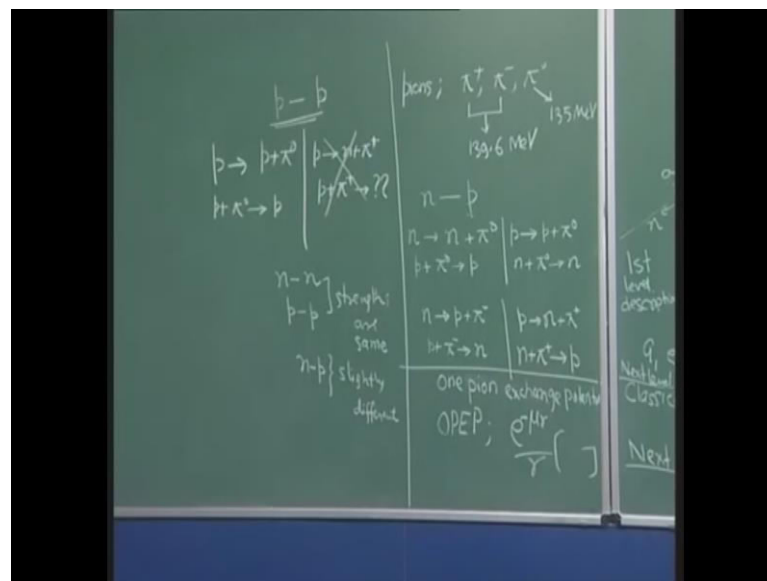 p – p
p → p+π⁰ | p → n+π⁺
p+π⁰ → p | p+π⁺ → ??
n–n
p–p ] strengths
are
same
n–p } slightly
different
pions; π⁺, π⁻, π⁰
135 MeV
139.6 MeV
n – p
n → n+π⁰ | p → p+π⁰
p+π⁰ → p | n+π⁰ → n
n → p+π⁻ | p → n+π⁺
p+π⁻ → n | n+π⁺ → p
One pion exchange potential
OPEP; e^-μr / r [ ]
1st
level
description
Next level
Classic
Next